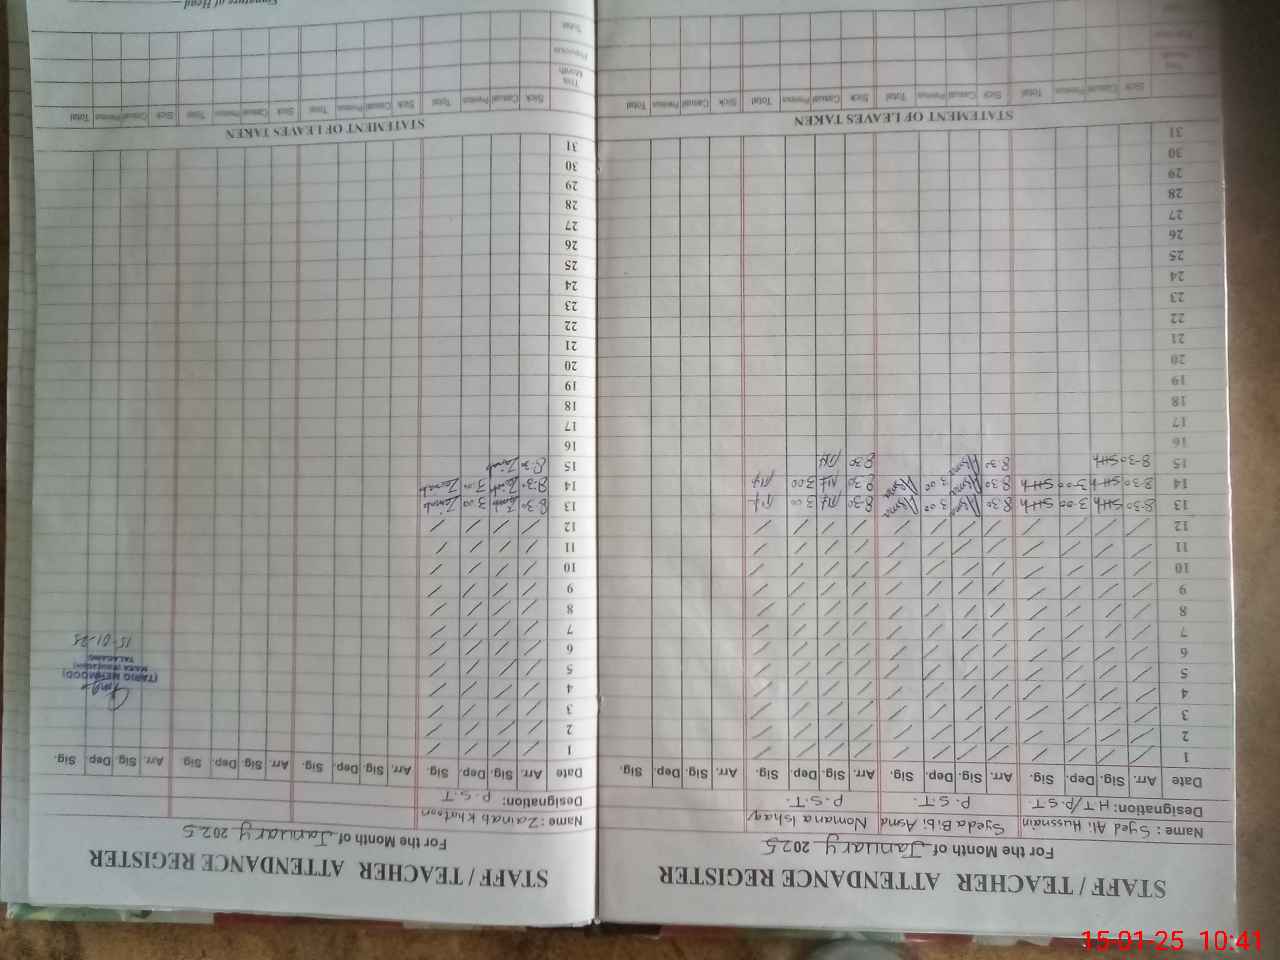 STAFF / TEACHER ATTENDANCE REGISTER
For the Month of January 2025
Name: Syed Ali Hussnain Syeda Bibi Asma Nomana Ishaq
Designation: H.T/P.S.T. P.S.T. P.S.T.
Date Arr. Sig. Dep. Sig. Arr. Sig. Dep. Sig. Arr. Sig. Dep. Sig. Arr. Sig. Dep. Sig.
1
2
3
4
5
6
7
8
9
10
11
12
13 8-30 3-00 8 30 Asma 3 00 Asma 8-30 3 00
14 8-30 3-00 8 30 Asma 3 00 Asma 8 30 3 00
15 8-30 8 30 Asma 8 30
16
17
18
19
20
21
22
23
24
25
26
27
28
29
30
31
STATEMENT OF LEAVES TAKEN
Sick Casual Previous Total Sick Casual Previous Total Sick Casual Previous Total Sick Casual Previous Total
STAFF / TEACHER ATTENDANCE REGISTER
For the Month of January 2025
Name: Zainab Khatoon
Designation: P.S.T
Date Arr. Sig. Dep. Sig. Arr. Sig. Dep. Sig. Arr. Sig. Dep. Sig. Arr. Sig. Dep. Sig.
1
2
3
4
(TARIQ MEHMOOD)
5
TALAGANG
6
15-01-25
7
8
9
10
11
12
13 8-30 Zainab 3 00 Zainab
14 8-30 Zainab 3-00 Zainab
15 8-30 Zainab
16
17
18
19
20
21
22
23
24
25
26
27
28
29
30
31
STATEMENT OF LEAVES TAKEN
Sick Casual Previous Total Sick Casual Previous Total Sick Casual Previous Total Sick Casual Previous Total
This Month
Previous
Total
Signature of Head
15-01-25 10:41